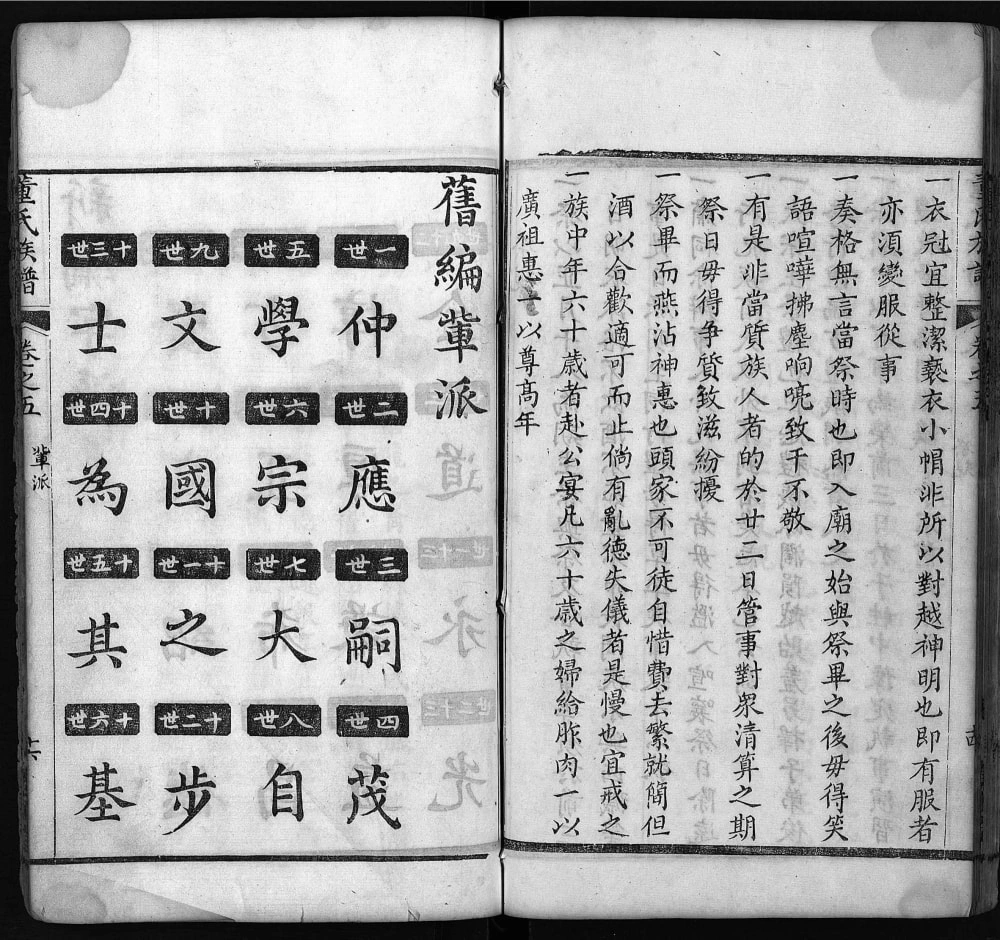 一衣冠宜整潔褻衣小帽非所以對越神明也即有服者
亦湏變服從事
一奏格無言當祭時也即入廟之始與祭畢之後毋得笑
語喧嘩拂塵响喨致干不敬
一有是非當質族人者的於廿二日管事對衆清算之期
祭日毋得争質致滋紛擾
一祭畢而燕沾神惠也頭家不可徒自惜費去繁就簡但
酒以合歡適可而止倘有亂德失儀者是慢也宜戒之
一族中年六十歲者赴公宴凡六十歲之婦給胙肉一以
廣祖惠一以尊高年
舊編軰派
一世
仲
二世
應
三世
嗣
四世
茂
五世
學
六世
宗
七世
大
八世
自
九世
文
十世
國
十一世
之
十二世
步
十三世
士
十四世
為
十五世
其
十六世
基
董氏族譜
卷之五
軰派